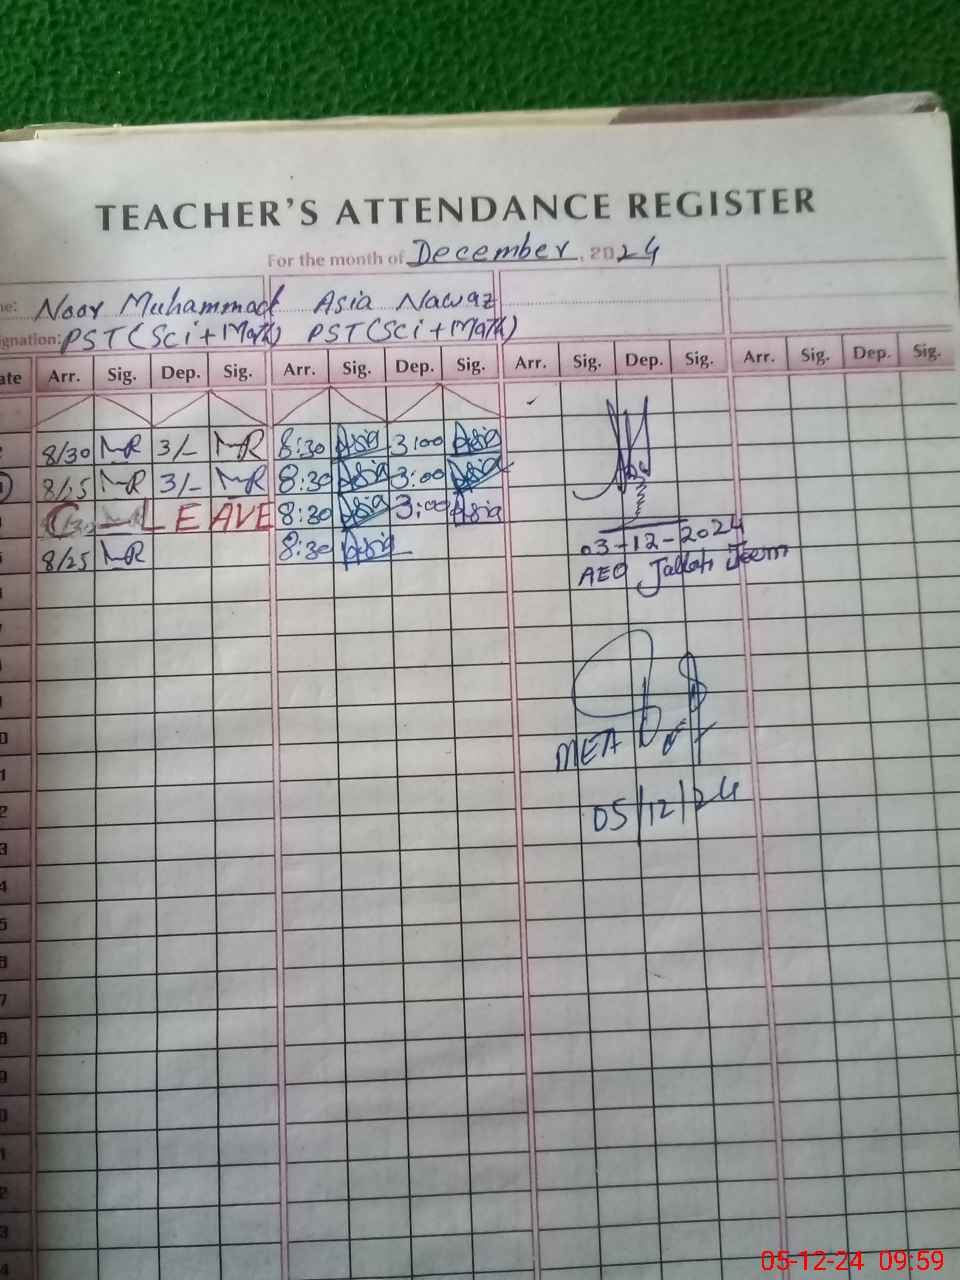 TEACHER'S ATTENDANCE REGISTER
For the month of December, 2024
ne: Noor Muhammad Asia Nawaz
ignation: PST (Sci + Math) PST (Sci + Math)
ate Arr. Sig. Dep. Sig. Arr. Sig. Dep. Sig. Arr. Sig. Dep. Sig. Arr. Sig. Dep. Sig.
8/30 NR 3/- NR 8:30 Asia 3:00 Asia
NR 3/- NR 8:30 Asia 3:00 Asia
C LEAVE 8:30 Asia 3:00 Asia
8/25 NR 8:30 Asia
03-12-2024
AEO
MEA
05/12/24
05-12-24 09:59